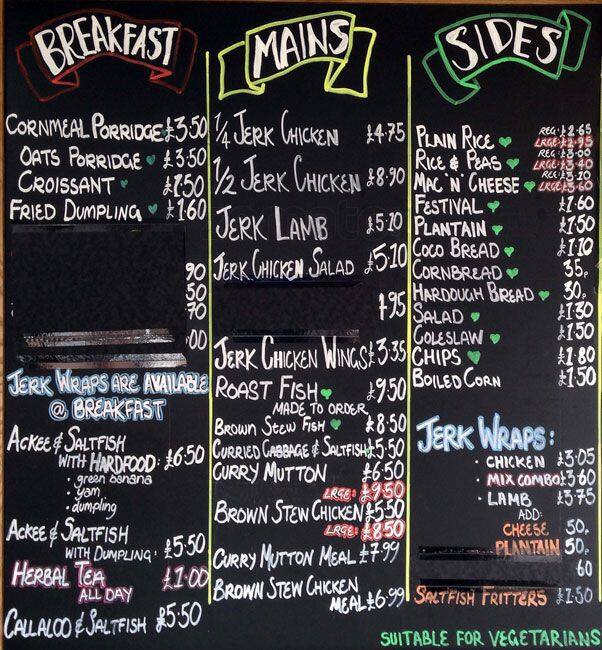 BREAKFAST
CORNMEAL PORRIDGE £3.50
OATS PORRIDGE £3.50
CROISSANT £1.50
FRIED DUMPLING £1.60
90
50
70
00
JERK WRAPS ARE AVAILABLE
@ BREAKFAST
ACKEE & SALTFISH
WITH HARDFOOD: £6.50
• green banana
• yam
• dumpling
ACKEE & SALTFISH
WITH DUMPLING: £5.50
HERBAL TEA £1.00
ALL DAY
CALLALOO & SALTFISH £5.50
MAINS
1/4 JERK CHICKEN £4.75
1/2 JERK CHICKEN £8.90
JERK LAMB £5.10
JERK CHICKEN SALAD £5.10
.95
JERK CHICKEN WINGS £3.35
ROAST FISH £9.50
MADE TO ORDER
BROWN STEW FISH £8.50
CURRIED CABBAGE & SALTFISH £5.50
CURRY MUTTON £6.50
LRGE: £9.50
BROWN STEW CHICKEN £5.50
LRGE: £8.50
CURRY MUTTON MEAL £7.99
BROWN STEW CHICKEN
MEAL £6.99
SIDES
REG: £2.65
PLAIN RICE LRGE: £2.95
REG: £3.00
RICE & PEAS LRGE: £3.40
REG: £3.10
MAC 'N' CHEESE LRGE: £3.60
FESTIVAL £1.60
PLANTAIN £1.50
COCO BREAD £1.10
CORNBREAD 35p
HARDOUGH BREAD 30p
SALAD £1.30
COLESLAW £1.50
CHIPS £1.80
BOILED CORN £1.50
JERK WRAPS:
• CHICKEN £3.05
• MIX COMBO £3.60
• LAMB £3.75
ADD:
CHEESE 50p
PLANTAIN 50p
60
SALTFISH FRITTERS £1.50
SUITABLE FOR VEGETARIANS